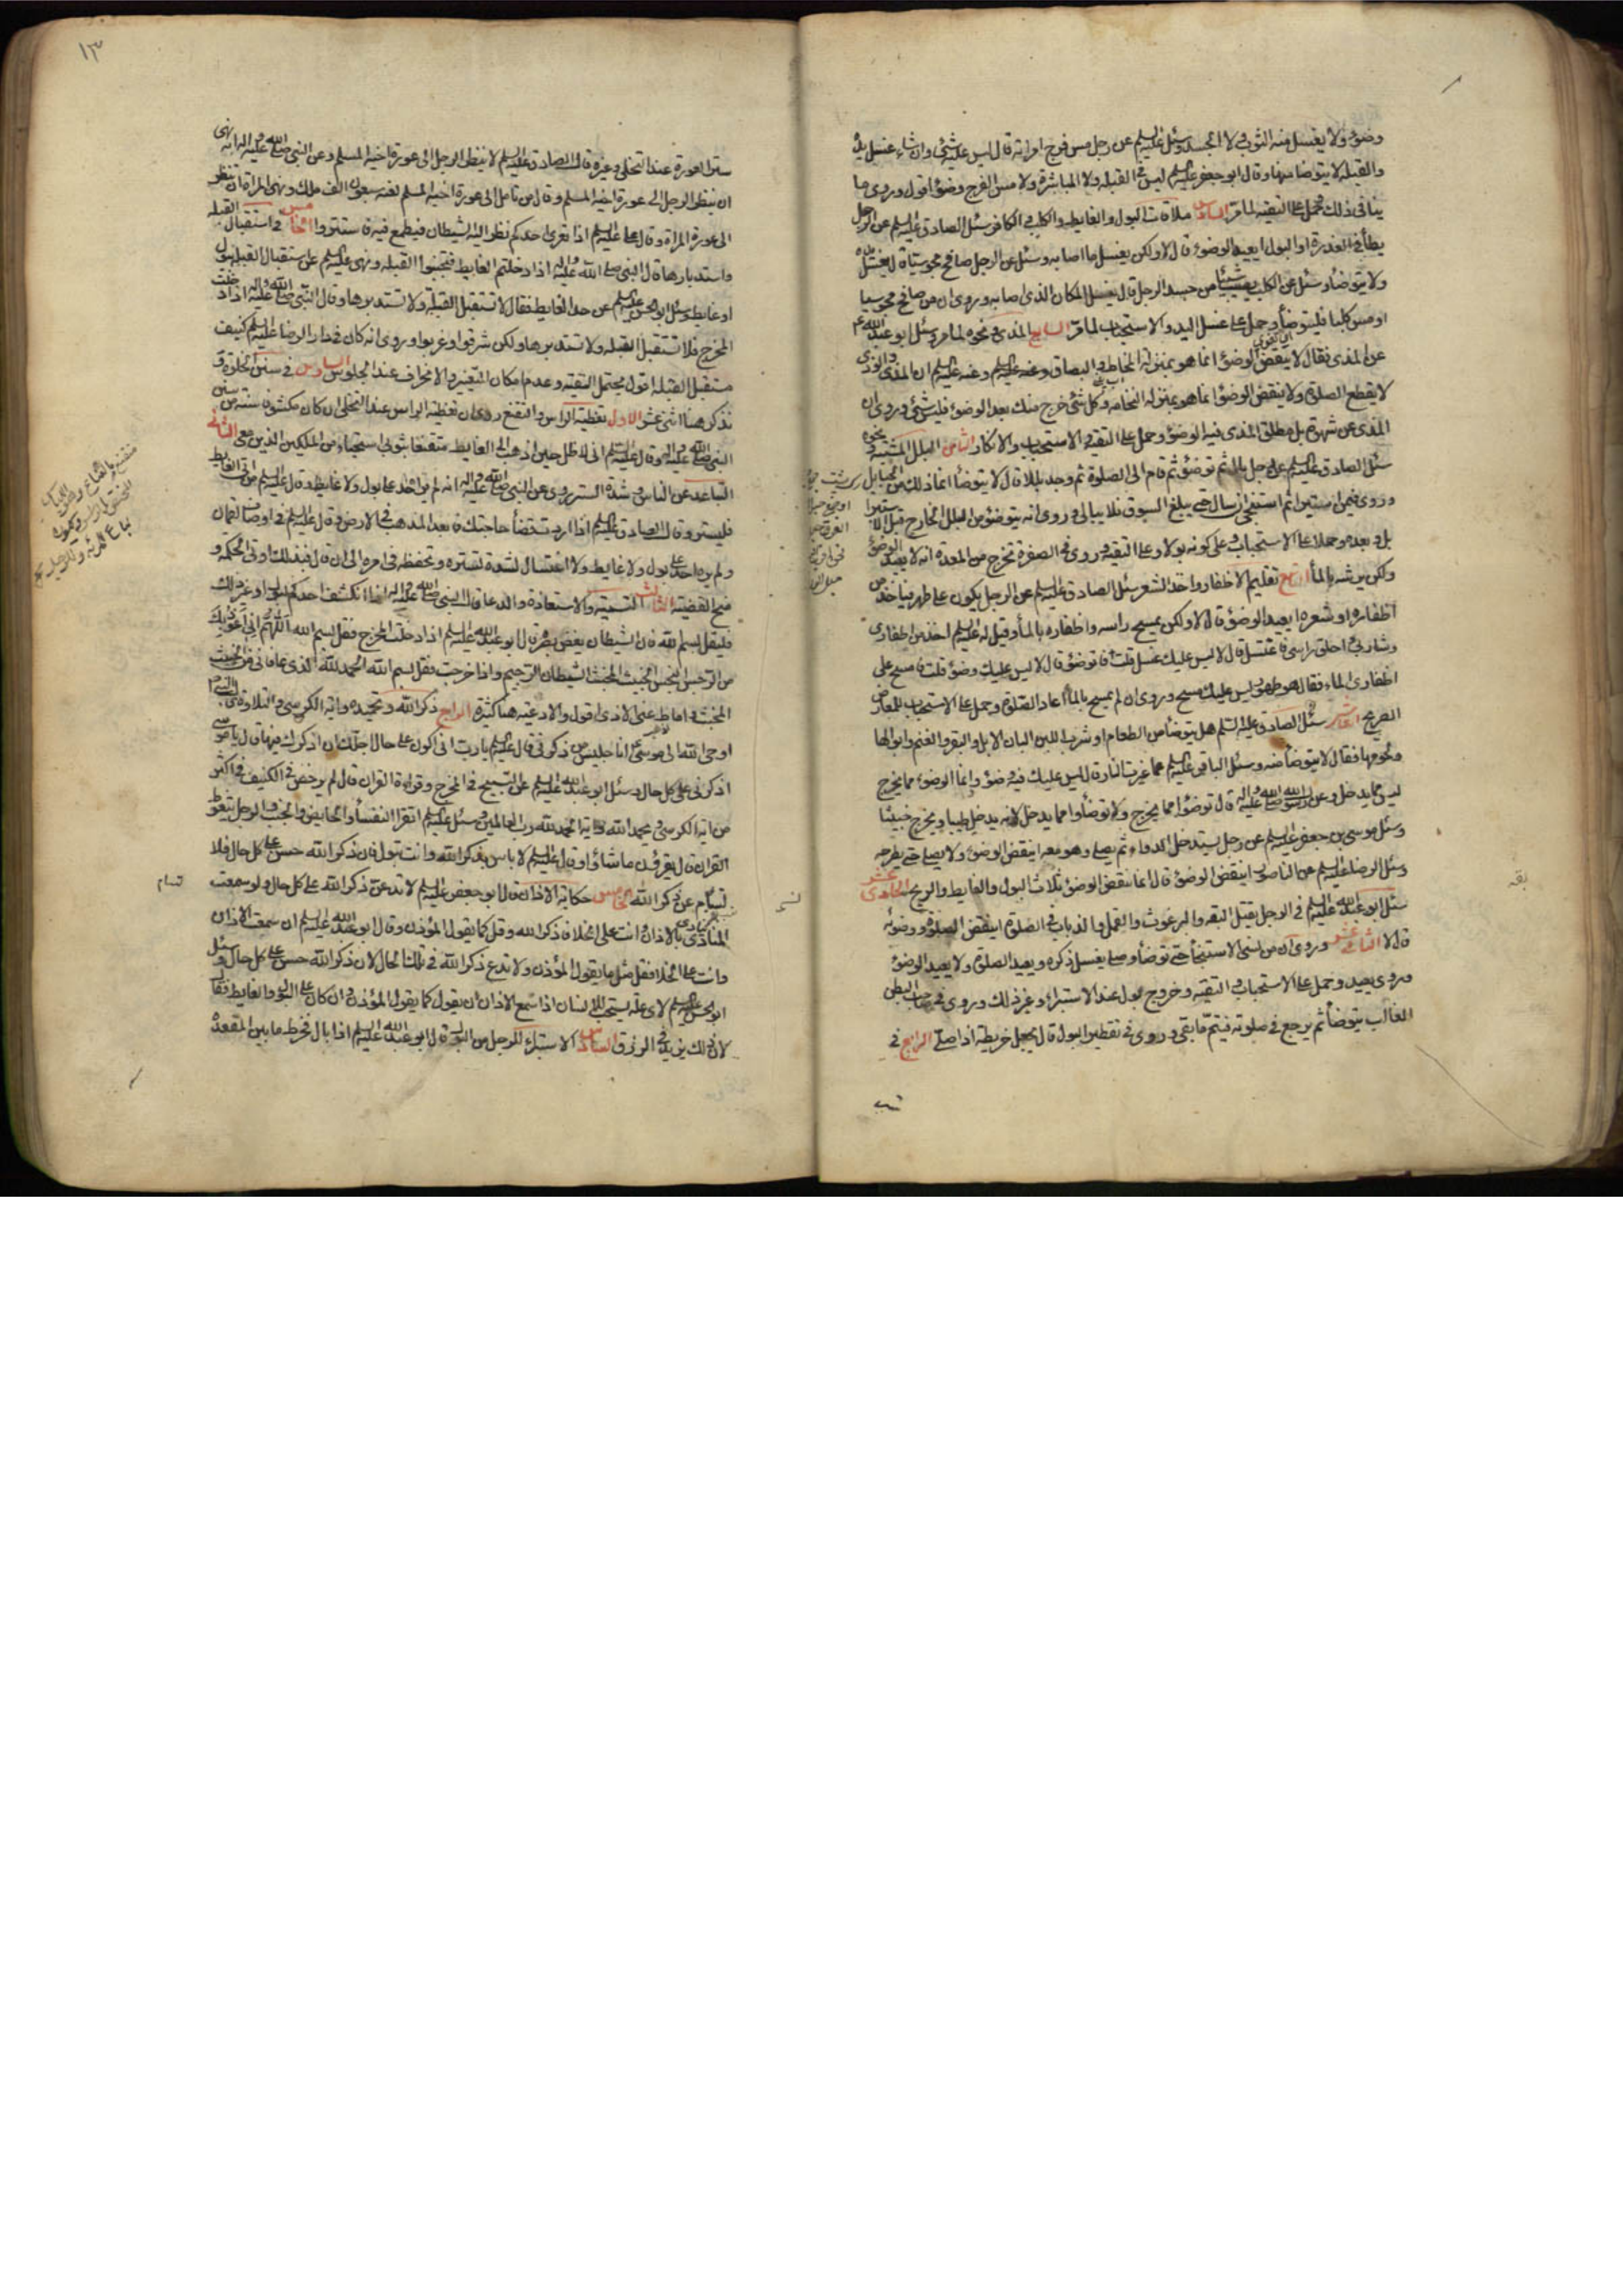 وضوء ولا يغسل منه الثوب ولا الجسد وسئل عليه السلم عن رجل مس فرج امراته قال ليس عليه شئ وان شاء غسل يده
والقبلة لا يتوضا منها وقال ابو جعفر عليه السلم ليس في القبلة ولا المباشرة ولا مس الفرج وضوء اقول وروى ما
ينافى ذلك وحمل على التقيه لما مر السادس ملاقات البول والغايط والكلب والكافر سئل الصادق عليه السلم عن الرجل
يطأ في العذرة او البول ايعيد الوضوء قال لا ولكن يغسل ما اصابه وسئل عن الرجل صافح مجوسيا قال يغسل يده
ولا يتوضأ وسئل عن الكلب يصيب شيئا من جسد الرجل قال يغسل المكان الذى اصابه وروى ان من صافح مجوسيا
او مس كلبا فليتوضأ وحمل على غسل اليد والاستحباب لما مر السابع المذى ونحوه لما مر وسئل ابو عبد الله ع
عن المذى فقال لا ينقض الوضوء انما هو بمنزلة المخاط والبصاق وعنه عليه السلم ان المذى والوذى
لا يقطع الصلوة ولا ينقض الوضوء انما هو بمنزلة النخامة وكل شئ خرج منك بعد الوضوء فليس بشئ وروى ان
المذى عن شهوة بل مطلق المذى فيه الوضوء وحمل على التقية والاستحباب والانكار الثامن البلل المشتبه ونحوه
سئل الصادق عليه السلم عن رجل بال ثم توضؤ ثم قام الى الصلوة ثم وجد بللا قال لا يتوضأ انما ذلك من الحبايل
وروى فيمن استبرأ ثم استنجى ان سال حتى يبلغ السوق فلا يبالى وروى انه يتوضؤ من البلل الخارج قبل الاستبراء
بل وبعده وحملا على الاستحباب وعلى كونه بولا وعلى التقيه وروى في الصفرة تخرج من المعدة انه لا يعيد الوضوء
ولكن يرشه بالماء التاسع تقليم الاظفار واخذ الشعر سئل الصادق عليه السلم عن الرجل يكون على طهر فياخذ من
اظفاره او شعره ايعيد الوضوء قال لا ولكن يمسح راسه واظفاره بالماء وقيل له عليه السلم اخذ من اظفارى
وشاربى واحلق راسى فاغتسل قال لا ليس عليك غسل قلت فاتوضؤ قال لا ليس عليك وضوء قلت فامسح على
اظفارى الماء فقال هو طهور ليس عليك مسح وروى ان لم يمسح بالماء اعاد الصلوة وحمل على الاستحباب للمعارض
الصريح العاشر سئل الصادق عليه السلم هل يتوضأ من الطعام او شرب اللبن البان الابل والبقر والغنم وابوالها
ولحومها فقال لا يتوضأ منه وسئل الباقر عليه السلم عما غيرت النار قال ليس عليك فيه وضوء وانما الوضوء مما يخرج
ليس مما يدخل وعن رسول الله صلى الله عليه واله قال توضؤا مما يخرج ولا توضأوا مما يدخل لانه يدخل طيبا ويخرج خبيثا
وسئل موسى بن جعفر عليه السلم عن رجل يستدخل الدواء ثم يصلى وهو معه اينقض الوضوء قال لا ولا يصلى حتى يطرحه
وسئل الرضا عليه السلم عن الناصور اينقض الوضوء قال انما ينقض الوضوء ثلاث البول والغايط والريح الحادى عشر
سئل ابو عبد الله عليه السلم في الرجل يقتل البقه والبرغوث والقمل والذباب في الصلوة اينقض الصلوة ووضوئه
قال لا الثانى عشر وروى ان من نسى الاستنجأ حتى توضأ وصلى يغسل ذكره ويعيد الصلوة ولا يعيد الوضوء
وروى يعيد وحمل على الاستحباب والتقيه وخروج بول عند الاستبراء وغير ذلك وروى في صاحب البطن
الغالب يتوضأ ثم يرجع في صلوته فيتم ما بقى وروى في تقطير البول قال يجعل خريطة اذا صلى الرابع في
ستر
بقه
١٣
ستر العورة عند التخلى وغيره قال الصادق عليه السلم لا ينظر الرجل الى عورة اخيه المسلم وعن النبى صلى الله عليه واله انه نهى
ان ينظر الرجل الى عورة اخيه المسلم وقال من تامل الى عورة اخيه المسلم لعنه سبعون الف ملك ونهى المراة ان تنظر
الى عورة المراة وقال على عليه السلم اذا تعرى احدكم نظر اليه الشيطان فيطمع فيه فاستتروا الخامس في استقبال القبله
واستدبارها قال النبى صلى الله عليه واله اذا دخلتم الغايط فتجنبوا القبله ونهى عليه السلم عن استقبال القبله ببول
او غايط وسئل ابو الحسن عليه السلم عن حد الغايط فقال لا تستقبل القبلة ولا تستدبرها وقال النبى صلى الله عليه واله اذا دخلت
المخرج فلا تستقبل القبله ولا تستدبرها ولكن شرقوا او غربوا وروى انه كان في دار الرضا عليه السلم كنيف
مستقبل القبله اقول يحتمل التقيه وعدم امكان التغيير والانحراف عند الجلوس السادس في سنن الخلوة و
نذكر هنا اثنى عشر الاول تغطية الراس والتقنع روى ان تغطية الراس عند التخلى ان كان مكشوفا سنة من سنن
النبى صلى الله عليه واله وقال عليه السلم انى لاظل حين اذهب الى الغايط متقنعا بثوبى استحياء من الملكين الذين معى الثانى
التباعد عن الناس وشدة الستر روى عن النبى صلى الله عليه واله انه لم ير احد على بول ولا غايط وقال عليه السلم من اتى الغايط
فليستتر وقال الصادق عليه السلم اذا اردت قضأ حاجتك فابعد المذهب في الارض وقال عليه السلم في اوصاف لقمان
ولم يره احد على بول ولا غايط ولا اغتسال لشدة تستره وتحفظه في امره الى ان قال فبذلك اوتى الحكمة و
منح القضية الثالث التسمية والاستعاذة والدعا قال النبى صلى الله عليه واله اذا انكشف احدكم لبول او غير ذلك
فليقل بسم الله فان الشيطان يغض بصره قال ابو عبد الله عليه السلم اذا دخلت المخرج فقل بسم الله اللهم انى اعوذ بك
من الرجس النجس الخبيث المخبث الشيطان الرجيم واذا خرجت فقل بسم الله الحمد لله الذى عافانى من الخبيث
المخبث واماط عنى الاذى اقول والادعيه هنا كثيرة الرابع ذكر الله وتحميده واية الكرسى والتلاوة
اوحى الله الى موسى انا جليس من ذكرنى قال عليه السلم يارب انى اكون على حال اجلك ان اذكرك فيها قال يا موسى
اذكرنى على كل حال وسئل ابو عبد الله عليه السلم عن التسبيح في المخرج وقراءة القران قال لم يرخص في الكنيف في اكثر
من اية الكرسى ويحمد الله واية الحمد لله رب العالمين وسئل عليه السلم اتقرا النفسأ والحايض والجنب والرجل يتغوط
القران قال يقرؤن ما شاؤا وقال عليه السلم لا باس بذكر الله وانت تبول فان ذكر الله حسن على كل حال فلا
تسام عن ذكر الله الخامس حكاية الاذان قال ابو جعفر عليه السلم لا تدعن ذكر الله على كل حال ولو سمعت
المنادى ينادى بالاذان وانت على الخلا فاذكر الله وقل كما يقول المؤذن وقال ابو عبد الله عليه السلم ان سمعت الاذان
وانت على الخلا فقل مثل ما يقول المؤذن ولا تدع ذكر الله في تلك الحال لان ذكر الله حسن على كل حال وسئل
ابو الحسن عليه السلم لاى علة يستحب للانسان اذا سمع الاذان ان يقول كما يقول المؤذن وان كان على البول والغايط فقال
لان ذلك يزيد في الرزق السادس الاستبراء للرجل من البول قال ابو عبد الله عليه السلم اذا بال فخرط ما بين المقعدة
تسام